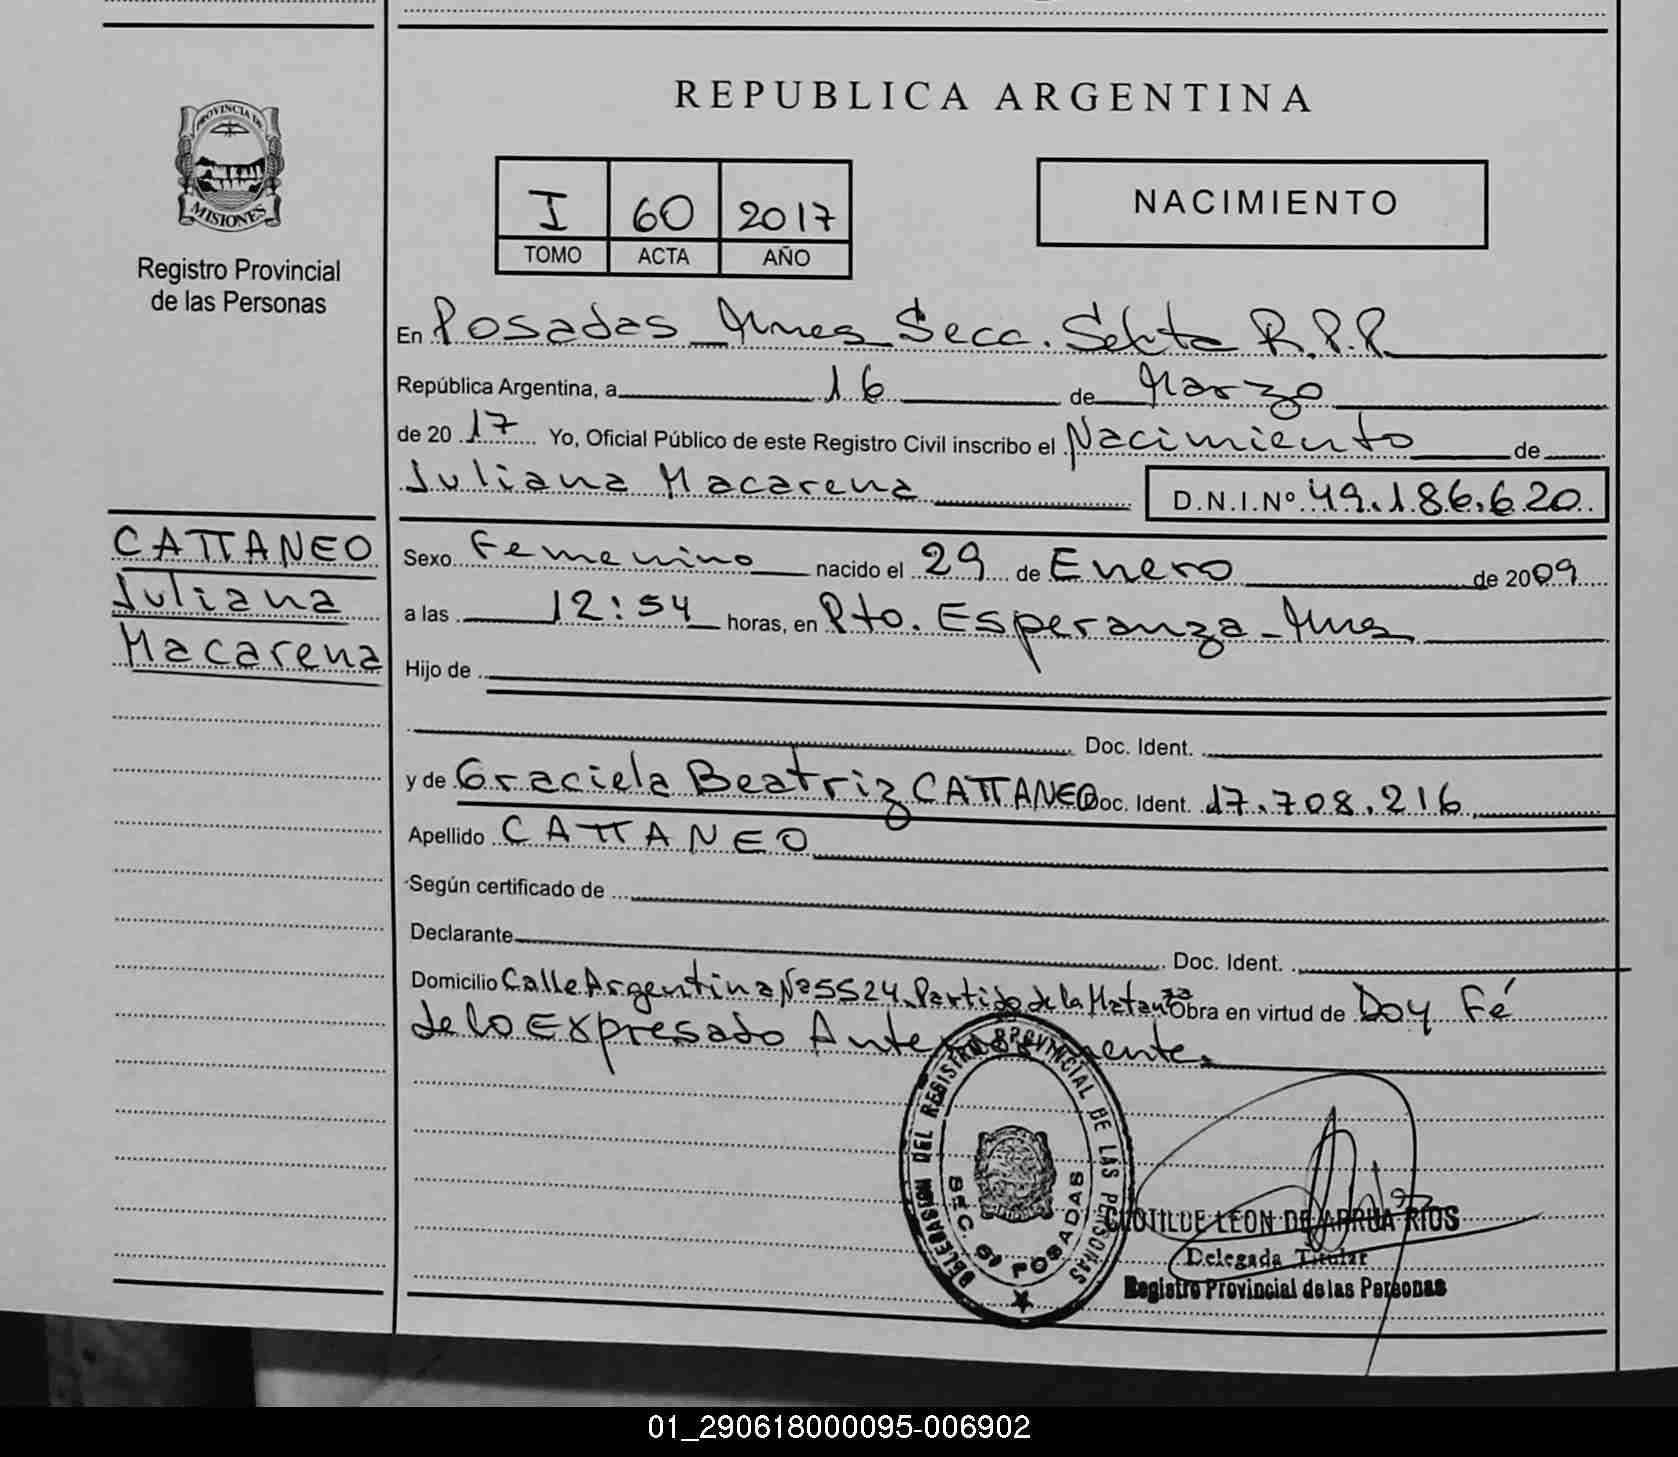 REPUBLICA ARGENTINA
PROVINCIA DE
MISIONES
Registro Provincial
de las Personas
I 60 2017
TOMO ACTA AÑO
NACIMIENTO
En Posadas - Mnes Secc. Sexta R.P.P.
República Argentina, a 16 de Marzo
de 20 17 Yo, Oficial Público de este Registro Civil inscribo el Nacimiento de
Juliana Macarena D.N.I.Nº 49.186.620
CATTANEO
Juliana
Macarena
Sexo Femenino nacido el 29 de Enero de 2009
a las 12:54 horas, en Pto. Esperanza - Mnes
Hijo de
Doc. Ident.
y de Graciela Beatriz CATTANEO Doc. Ident. 17.708.216
Apellido CATTANEO
Según certificado de
Declarante Doc. Ident.
Domicilio Calle Argentina Nº 5524 Partido de la Matanza Obra en virtud de Doy Fé
de lo Expresado Anteriormente.
DELEGACION DEL REGISTRO PROVINCIAL DE LAS PERSONAS
SEC. 6ª POSADAS
CLOTILDE LEON DE ARRUA RIOS
Delegada Titular
Registro Provincial de las Personas
01_290618000095-006902